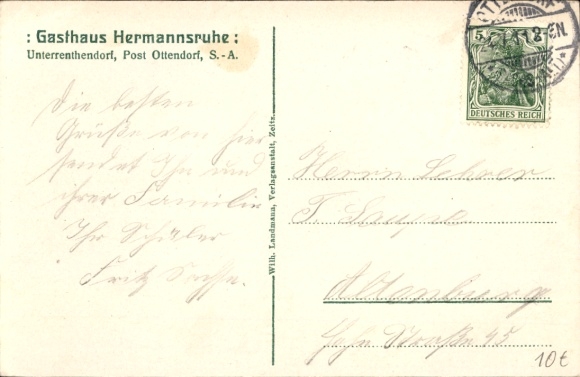 : Gasthaus Hermannsruhe :
Unterrenthendorf, Post Ottendorf, S.-A.
Die besten
Grüße von hier
sendet Ihn und
ihrer Familie
Ihr Schüler
Fritz
Wilh. Landmann, Verlagsanstalt, Zeitz.
5
DEUTSCHES REICH
Herrn Lehrer
T.
Altenburg
Straße 45
10€